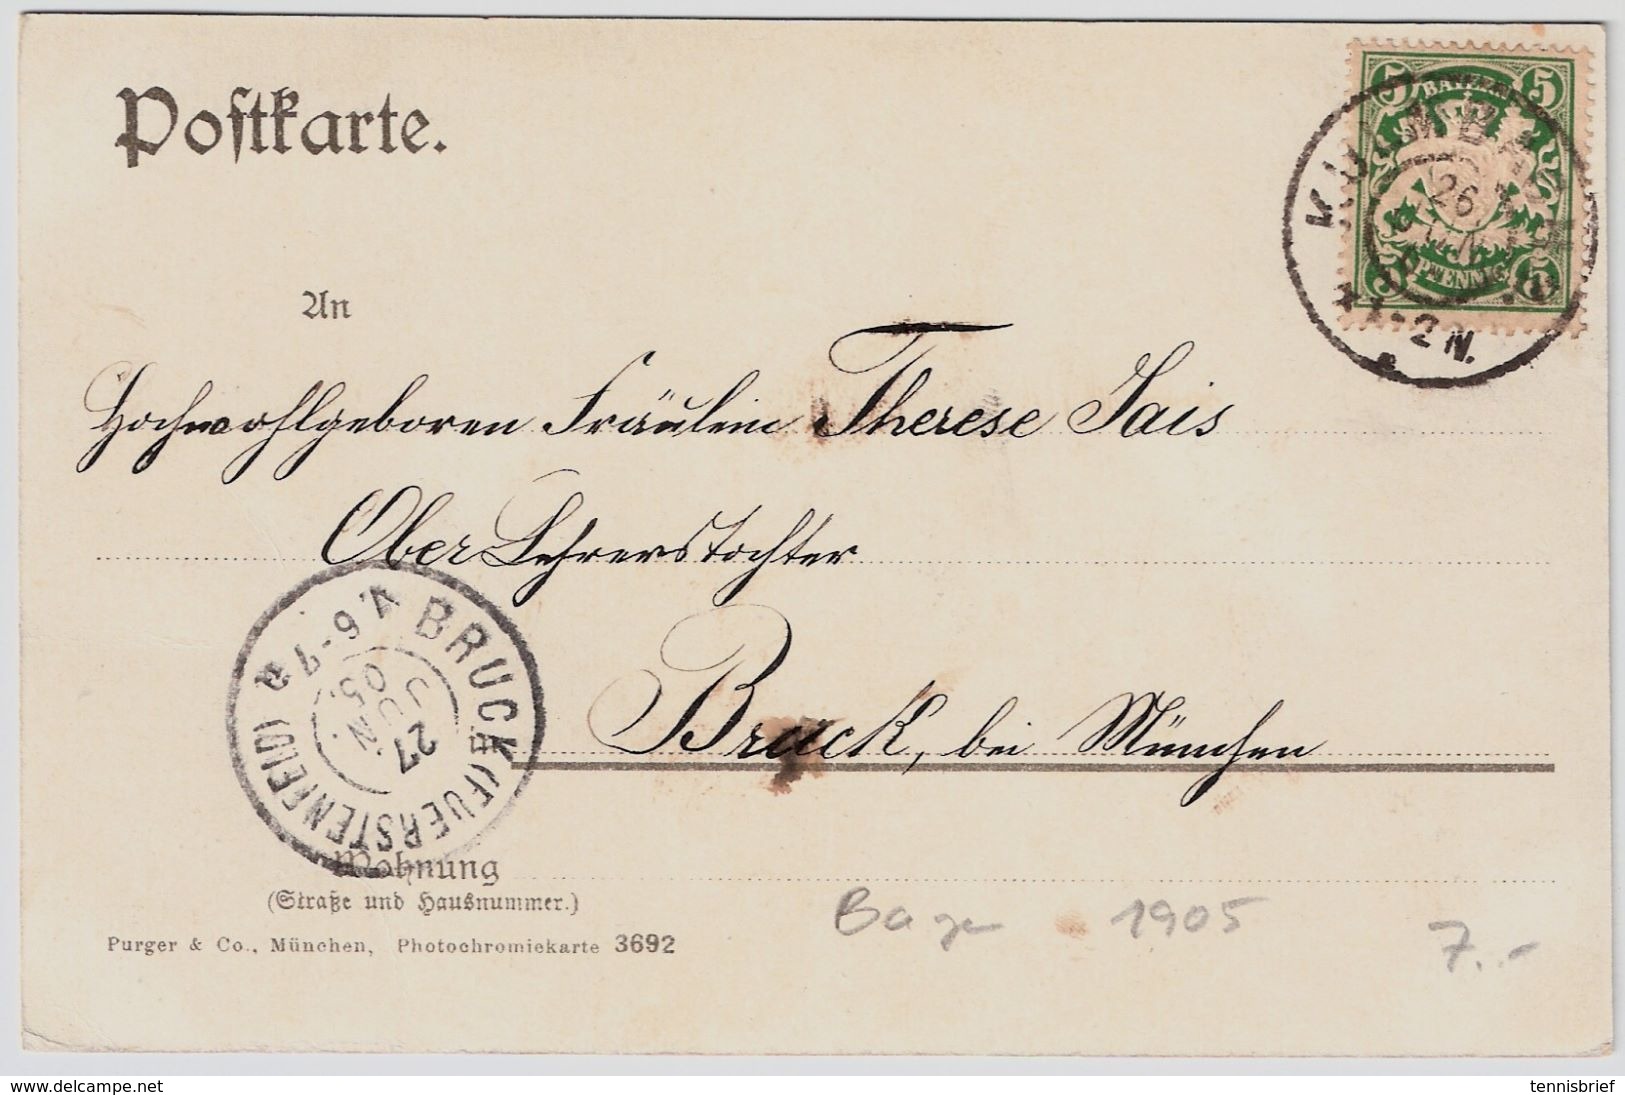 Postkarte.
BAYERN
5 5
PFENNIG
5 5
KULMBACH
26
JUN.
1-2 N.
An
Hochwohlgeboren Fräulein Therese Sais
Ober Lehrerstochter
Bruck, bei München
BRUCK (FUERSTENFELD)
27
JUN.
05.
6-7
Wohnung
(Straße und Hausnummer.)
Purger & Co., München, Photochromiekarte 3692
1905
7.-
www.delcampe.net
tennisbrief